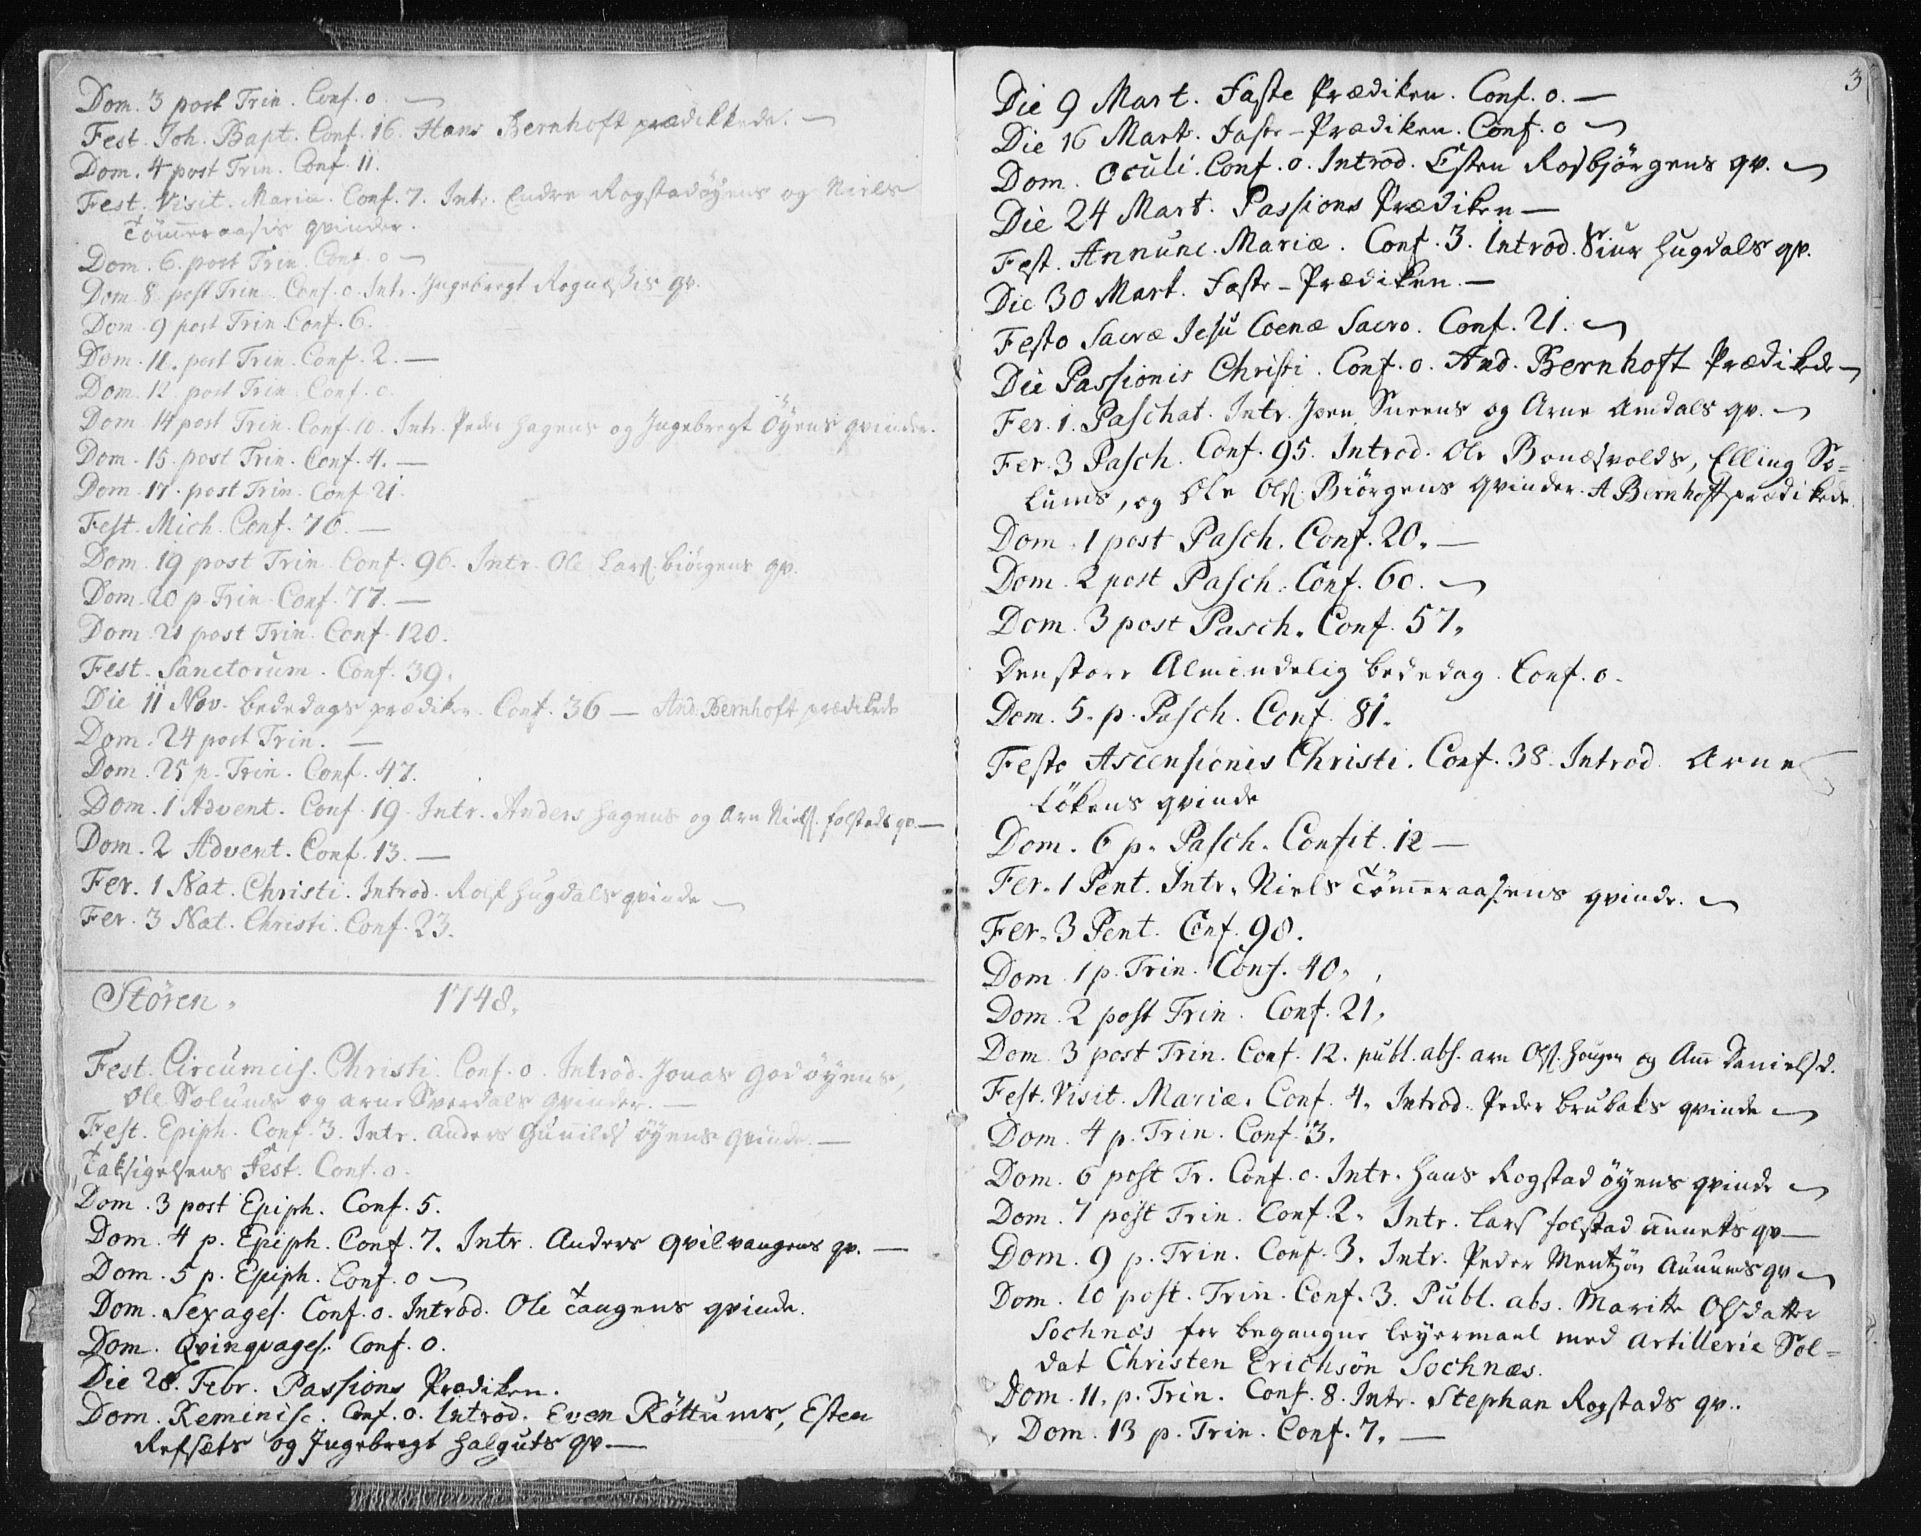 Dom. 3 post Trin. Conf. 0.
Fest. Joh. Bapt. Conf. 16. Hans Bernhoft prædikkede. —
Dom. 4 post Trin. Conf. 11.
Fest. Visit. Mariæ. Conf. 7. Intr. Endre Rogstadøyens og Niels
Tømmeraasis qvinder.
Dom. 6. post Trin. Conf. 0 —
Dom. 8. post Trin. Conf. 0. Intr. Ingebregt Rognæsses qv.
Dom. 9 post Trin. Conf. 6.
Dom. 11. post Trin. Conf. 2. —
Dom. 12 post Trin. Conf. 0.
Dom. 14 post Trin. Conf. 10. Intr. Peder Hagens og Ingebregt Øyens qvinder.
Dom. 15. post Trin. Conf. 4. —
Dom. 17. post Trin. Conf. 21.
Fest. Mich. Conf. 76. —
Dom. 19 post Trin. Conf. 96. Intr. Ole Lars. biörgens qv.
Dom. 20 p. Trin. Conf. 77. —
Dom. 21 post Trin. Conf. 120.
Fest. Sanctorum. Conf. 39.
Die 11 Nov. bededags prædiken. Conf. 36 — And. Bernhoft prædikede
Dom. 24 post Trin. —
Dom. 25 p. Trin. Conf. 47.
Dom. 1 Advent. Conf. 19. Intr. Anders Hagens og Arn Niels. folstads qv. —
Dom. 2 Advent. Conf. 13. —
Fer. 1 Nat. Christi. Introd. Rolf Hugdals qvinde —
Fer. 3 Nat. Christi. Conf. 23.
Stören. 1748.
Fest. Circumcis. Christi. Conf. 0. Introd. Jonas Godøyens,
Ole Solums og Arne Sverdals qvinder. —
Fest. Epiph. Conf. 3. Intr. Anders Gunnilds øyens qvinde. —
Taksigelsens Fest. Conf. 0.
Dom. 3 post Epiph. Conf. 5.
Dom. 4 p. Epiph. Conf. 7. Intr. Anders Qvilvangens qv. —
Dom. 5 p. Epiph. Conf. 0 —
Dom. Sexages. Conf. 0. Introd. Ole Taugens qvinde.
Dom. Qvinqvages. Conf. 0.
Die 28. Febr. Passions Prædiken.
Dom. Reminisc. Conf. 0. Introd. Even Röttums, Esten
Refsæts og Ingebregt Halguts qv —
3
Die 9 Mart. Faste Prædiken. Conf. 0. —
Die 16 Mart. Faste-Prædiken. Conf. 0 —
Dom. Oculi. Conf. 0. Introd. Esten Rosbjørgens qv. —
Die 24 Mart. Passions Prædiken —
Fest. Annunc. Mariæ. Conf. 3. Introd. Siur Hugdals qv.
Die 30 Mart. Faste-Prædiken. —
Festo Sacræ Jesu Coenæ Sacro. Conf. 21. —
Die Passionis Christi. Conf. 0. And. Bernhoft Prædikede —
Fer. 1. Paschat. Intr. Joen Sneens og Arne Amdals qv. —
Fer. 3 Pasch. Conf. 95. Introd. Ole Bonæsvolds, Elling So=
lums, og Ole Ols. Biörgens qvinder. A Bernhoft prædikede.
Dom. 1 post Pasch. Conf. 20. —
Dom. 2 post Pasch. Conf. 60. —
Dom. 3 post Pasch. Conf. 57.
Den store Almindelig bededag. Conf. 0.
Dom. 5. p. Pasch. Conf. 81.
Festo Ascensionis Christi. Conf. 38. Introd. Arne
Løkens qvinde
Dom. 6 p. Pasch. Confit. 12 —
Fer. 1 Pent. Intr. Niels Tømmeraasens qvinde. —
Fer. 3 Pent. Conf. 98.
Dom. 1 p. Trin. Conf. 40.
Dom. 2 post Trin. Conf. 21.
Dom. 3 post Trin. Conf. 12. publ. abs. Arn Ols. Hougen og Ann Danielsd.
Fest. Visit. Mariæ. Conf. 4. Introd. Peder brubaks qvinde —
Dom. 4 p. Trin. Conf. 3.
Dom. 6 post Tr. Conf. 0. Intr. Hans Rogstad øyens qvinde —
Dom. 7 post Trin. Conf. 2. Intr. Lars folstad qv —
Dom. 9 p. Trin. Conf. 3. Intr. Peder Mentzøn Aunums qv —
Dom. 10 post. Trin. Conf. 3. Publ. abs. Maritte Olsdatter
Sochnæs for begangne leyermaal med Artillerie Sol=
dat Christen Erichsøn Sochnæs.
Dom. 11. p. Trin. Conf. 8. Intr. Stephan Rogstads qv.
Dom. 13 p. Trin. Conf. 7. —